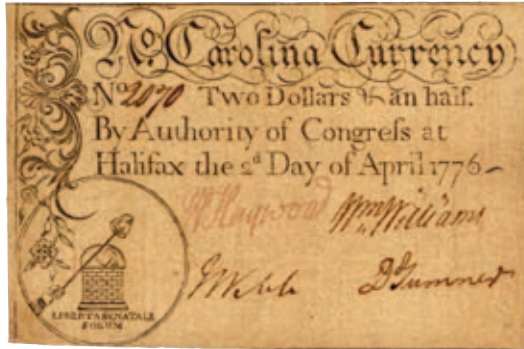 No. Carolina Currency
No 2070 Two Dollars & an half.
By Authority of Congreſs at
Halifax the 2d Day of April 1776
W Haywood Wm Williams
J Webb D Sumner
LIBERTAS NATALE
SOLUM